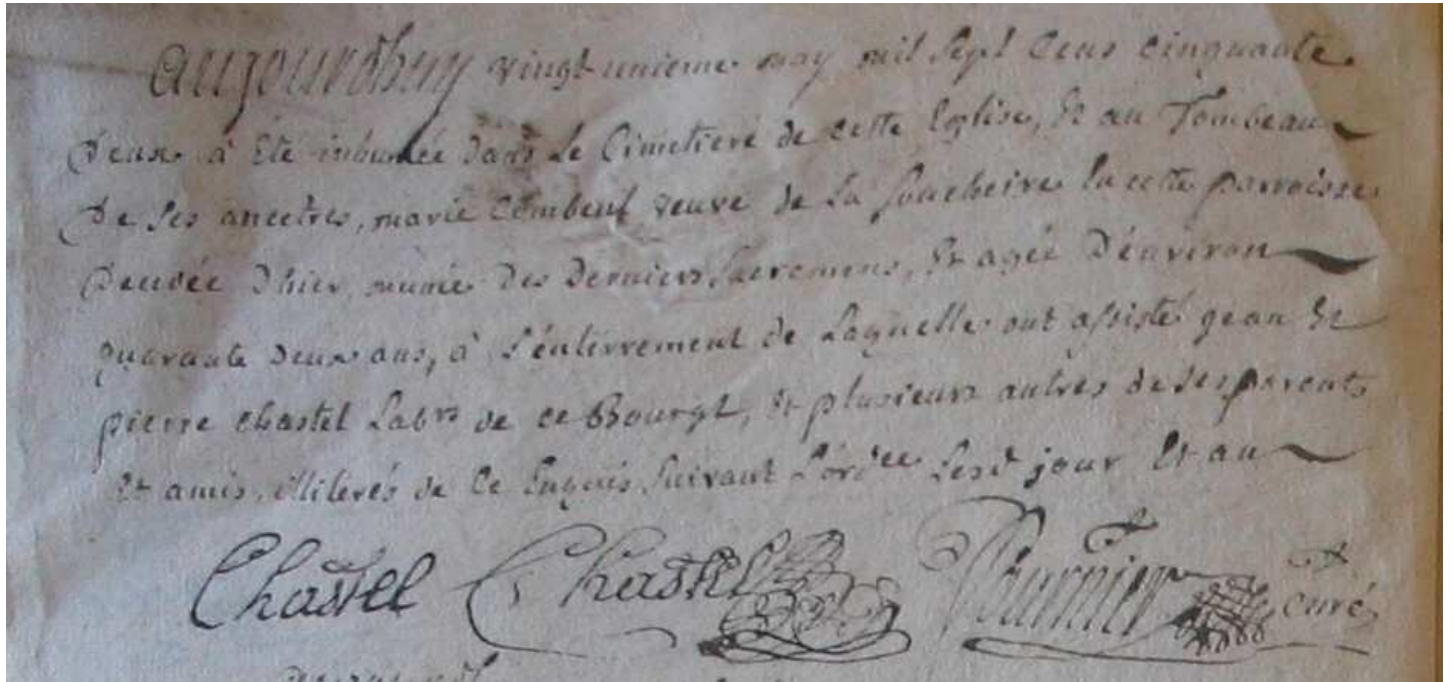 aujourdhuy vingt unieme may mil sept cens cinquante
deux à été inhumée dans le Cimetiere de cette Eglise, & au Tombeau
de ses ancetres, marie Combeuf veuve de la soucheire en cette parroisse
decedée d'hier, munie des derniers sacremens, & agée d'environ
quarante deux ans, à l'enterrement de laquelle ont assisté jean &
pierre chastel labrs de ce Bourgt, & plusieurs autres de ses parents
& amis, illiterés de ce enquis suivant l'ordce lesd jour et an
Chastel Chastel fournier curé